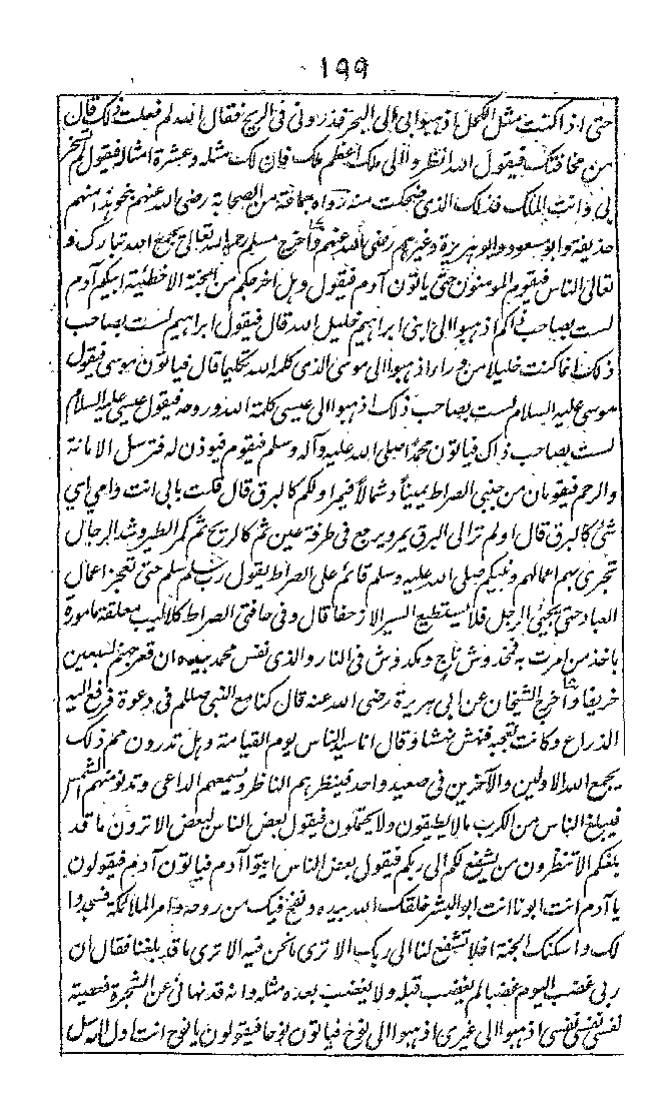 ۱۹۹
حتى اذا كنت مثل الكحل فاذهبوا بى الى البحر فذرونى فى الريح فقال الله لم فعلت ذلك قال
من مخافتك فيقول الله انظروا الى ملك اعظم ملك فان لك مثله وعشرة امثاله فيقول لم تسخر
بى وانت الملك فذلك الذى ضحكت منه رواه جماعة من الصحابة رضى الله عنهم بنحو هذا منهم
حذيفة وابو سعود وابو هريرة وغيرهم رضى الله عنهم واخرج مسلم رحمه الله تعالى يجمع الله تبارك و
تعالى الناس فيقوم المومنون حتى ياتون آدم فيقول وهل اخرجكم من الجنة الا خطيئة ابيكم آدم
لست بصاحب ذاكم اذهبوا الى ابنى ابراهيم خليل الله قال فيقول ابراهيم لست بصاحب
ذلك انما كنت خليلا من وراء اذهبوا الى موسى الذى كلمه الله تكليما قال فياتون موسى فيقول
موسى عليه السلام لست بصاحب ذلك اذهبوا الى عيسى كلمة الله وروحه فيقول عيسى عليه السلام
لست بصاحب ذاك فياتون محمدا صلى الله عليه وآله وسلم فيقوم فيوذن له فترسل الامانة
والرحم فيقومان من جنبى الصراط يمينا وشمالا فيمر اولكم كالبرق قال قلت بابى انت وامى اى
شئ كالبرق قال اولم تر الى البرق يمر ويرجع فى طرفة عين ثم كالريح ثم كمر الطير وشد الرجال
تجرى بهم اعمالهم ونبيكم صلى الله عليه وسلم قائم على الصراط يقول رب سلم سلم حتى تعجز اعمال
العباد حتى يجئ الرجل فلا يستطيع السير الا زحفا قال وفى حافتى الصراط كلاليب معلقة مامورة
باخذ من امرت به فمخدوش ناج ومكدوش فى النار والذى نفس محمد بيده ان قعر جهنم لسبعين
خريفا واخرج الشيخان عن ابى هريرة رضى الله عنه قال كنا مع النبى صللم فى دعوة فرفع اليه
الذراع وكانت تعجبه فنهش نهشا وقال انا سيد الناس يوم القيامة وهل تدرون مم ذلك
يجمع الله الاولين والآخرين فى صعيد واحد فينظرهم الناظر ويسمعهم الداعى وتدنو منهم الشمس
فيبلغ الناس من الكرب مالا يطيقون ولا يحتملون فيقول بعض الناس لبعض الا ترون ما قد
بلغكم الا تنظرون من يشفع لكم الى ربكم فيقول بعض الناس ايتوا آدم فياتون آدم فيقولون
يا آدم انت ابونا انت ابو البشر خلقك الله بيده ونفخ فيك من روحه وامر الملائكة فسجدوا
لك واسكنك الجنة افلا تشفع لنا الى ربك الا ترى ما نحن فيه الا ترى ما قد بلغنا فقال ان
ربى غضب اليوم غضبا لم يغضب قبله ولا يغضب بعده مثله وانه قد نهانى عن الشجرة فعصيته
نفسى نفسى نفسى اذهبوا الى غيرى اذهبوا الى نوح فياتون نوحا فيقولون يا نوح انت اول الرسل